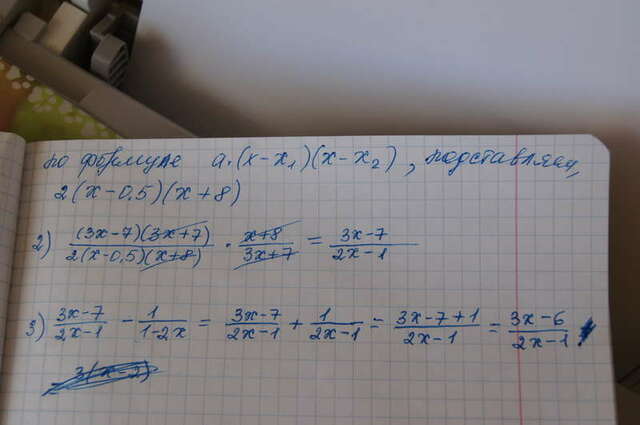 по формуле a·(x-x₁)(x-x₂), подставляем,
2(x-0,5)(x+8)
2) (3x-7)(3x+7)/2(x-0,5)(x+8) · x+8/3x+7 = 3x-7/2x-1
3) 3x-7/2x-1 - 1/1-2x = 3x-7/2x-1 + 1/2x-1 = 3x-7+1/2x-1 = 3x-6/2x-1
3(x-2)